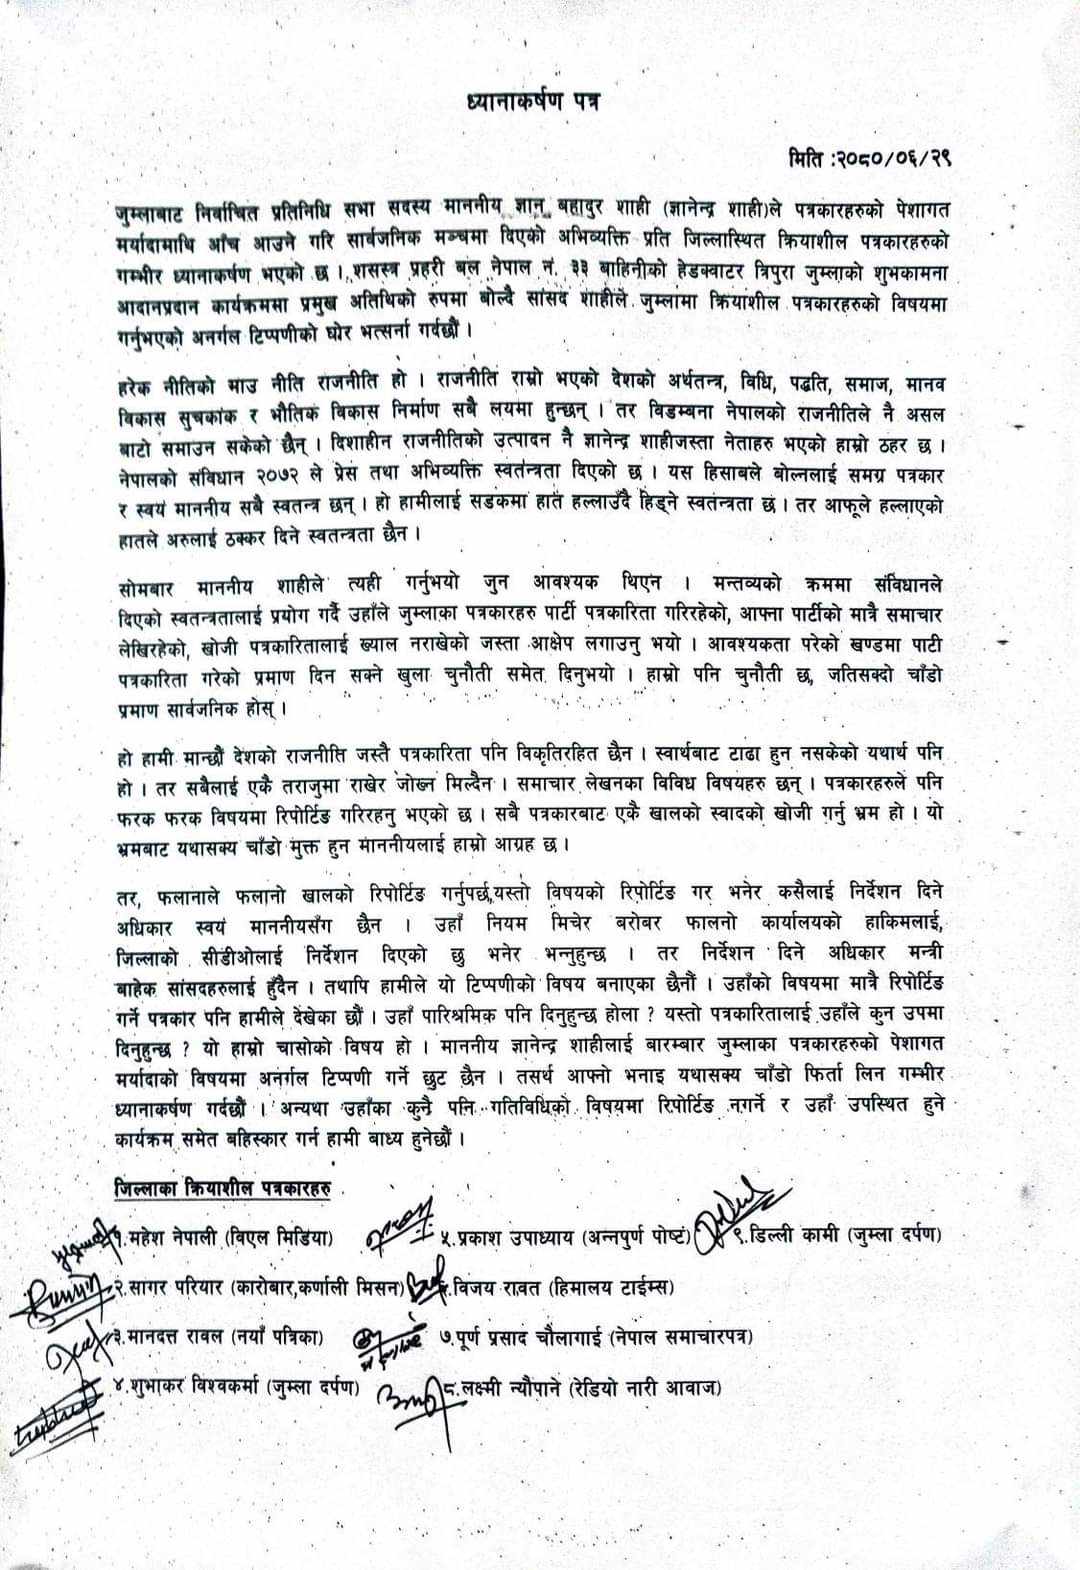 ध्यानाकर्षण पत्र
मिति :२०८०/०६/२९
जुम्लाबाट निर्वाचित प्रतिनिधि सभा सदस्य माननीय ज्ञान बहादुर शाही (ज्ञानेन्द्र शाही)ले पत्रकारहरुको पेशागत
मर्यादामाथि आँच आउने गरि सार्वजनिक मञ्चमा दिएको अभिव्यक्ति प्रति जिल्लास्थित क्रियाशील पत्रकारहरुको
गम्भीर ध्यानाकर्षण भएको छ । शसस्त्र प्रहरी बल नेपाल नं. ३३ बाहिनीको हेडक्वाटर त्रिपुरा जुम्लाको शुभकामना
आदानप्रदान कार्यक्रममा प्रमुख अतिथिको रुपमा बोल्दै सांसद शाहीले जुम्लामा क्रियाशील पत्रकारहरुको विषयमा
गर्नुभएको अनर्गल टिप्पणीको घोर भत्सर्ना गर्दछौं ।
हरेक नीतिको माउ नीति राजनीति हो । राजनीति राम्रो भएको देशको अर्थतन्त्र, विधि, पद्धति, समाज, मानव
विकास सुचकांक र भौतिक विकास निर्माण सबै लयमा हुन्छन् । तर विडम्बना नेपालको राजनीतिले नै असल
बाटो समाउन सकेको छैन् । दिशाहीन राजनीतिको उत्पादन नै ज्ञानेन्द्र शाहीजस्ता नेताहरु भएको हाम्रो ठहर छ ।
नेपालको संविधान २०७२ ले प्रेस तथा अभिव्यक्ति स्वतन्त्रता दिएको छ । यस हिसाबले बोल्नलाई समग्र पत्रकार
र स्वयं माननीय सबै स्वतन्त्र छन् । हो हामीलाई सडकमा हात हल्लाउँदै हिड्ने स्वतंन्त्रता छ । तर आफूले हल्लाएको
हातले अरुलाई ठक्कर दिने स्वतन्त्रता छैन ।
सोमबार माननीय शाहीले त्यही गर्नुभयो जुन आवश्यक थिएन । मन्तव्यको क्रममा संविधानले
दिएको स्वतन्त्रतालाई प्रयोग गर्दै उहाँले जुम्लाका पत्रकारहरु पार्टी पत्रकारिता गरिरहेको, आफ्ना पार्टीको मात्रै समाचार
लेखिरहेको, खोजी पत्रकारितालाई ख्याल नराखेको जस्ता आक्षेप लगाउनु भयो । आवश्यकता परेको खण्डमा पाटी
पत्रकारिता गरेको प्रमाण दिन सक्ने खुला चुनौती समेत दिनुभयो । हाम्रो पनि चुनौती छ, जतिसक्दो चाँडो
प्रमाण सार्वजनिक होस् ।
हो हामी मान्छौं देशको राजनीति जस्तै पत्रकारिता पनि विकृतिरहित छैन । स्वार्थबाट टाढा हुन नसकेको यथार्थ पनि
हो । तर सबैलाई एकै तराजुमा राखेर जोख्न मिल्दैन । समाचार लेखनका विविध विषयहरु छन् । पत्रकारहरुले पनि
फरक फरक विषयमा रिपोर्टिङ गरिरहनु भएको छ । सबै पत्रकारबाट एकै खालको स्वादको खोजी गर्नु भ्रम हो । यो
भ्रमबाट यथासक्य चाँडो मुक्त हुन माननीयलाई हाम्रो आग्रह छ ।
तर, फलानाले फलानो खालको रिपोर्टिङ गर्नुपर्छ,यस्तो विषयको रिपोर्टिङ गर भनेर कसैलाई निर्देशन दिने
अधिकार स्वयं माननीयसँग छैन । उहाँ नियम मिचेर बरोबर फालनो कार्यालयको हाकिमलाई,
जिल्लाको सीडीओलाई निर्देशन दिएको छु भनेर भन्नुहुन्छ । तर निर्देशन दिने अधिकार मन्त्री
बाहेक सांसदहरुलाई हुँदैन । तथापि हामीले यो टिप्पणीको विषय बनाएका छैनौं । उहाँको विषयमा मात्रै रिपोर्टिङ
गर्ने पत्रकार पनि हामीले देखेका छौं । उहाँ पारिश्रमिक पनि दिनुहुन्छ होला ? यस्तो पत्रकारितालाई उहाँले कुन उपमा
दिनुहुन्छ ? यो हाम्रो चासोको विषय हो । माननीय ज्ञानेन्द्र शाहीलाई बारम्बार जुम्लाका पत्रकारहरुको पेशागत
मर्यादाको विषयमा अनर्गल टिप्पणी गर्ने छुट छैन । तसर्थ आफ्नो भनाइ यथासक्य चाँडो फिर्ता लिन गम्भीर
ध्यानाकर्षण गर्दछौं । अन्यथा उहाँका कुनै पनि गतिविधिको विषयमा रिपोर्टिङ नगर्ने र उहाँ उपस्थित हुने
कार्यक्रम समेत बहिस्कार गर्न हामी बाध्य हुनेछौं ।
जिल्लाका क्रियाशील पत्रकारहरु
१.महेश नेपाली (विएल मिडिया) ५.प्रकाश उपाध्याय (अन्नपुर्ण पोष्टं) ९.डिल्ली कामी (जुम्ला दर्पण)
२.सागर परियार (कारोबार,कर्णाली मिसन) ६.विजय रावत (हिमालय टाईम्स)
३.मानदत्त रावल (नयाँ पत्रिका) ७.पूर्ण प्रसाद चौलागाई (नेपाल समाचारपत्र)
४.शुभाकर विश्वकर्मा (जुम्ला दर्पण) ८.लक्ष्मी न्यौपाने (रेडियो नारी आवाज)